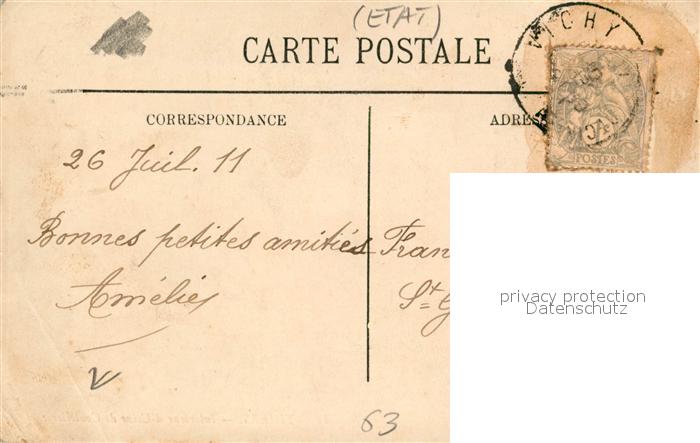 (ETAT)
CARTE POSTALE
VICHY
CORRESPONDANCE
ADRES
POSTES
26 Juil. 11
Bonnes petites amitiés
Amélie
Fran
St. G
privacy protection
Datenschutz
63